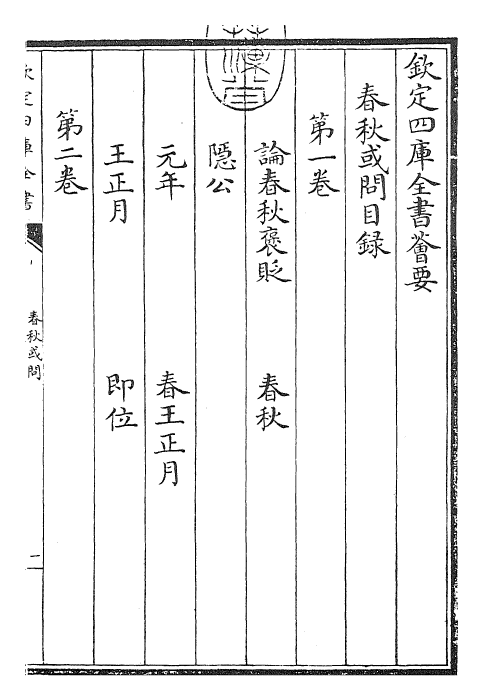 欽定四庫全書薈要
春秋或問目録
第一卷
論春秋褒貶　春秋
隠公
元年　春王正月
王正月　即位
第二卷
欽定四庫全書
春秋或問
二